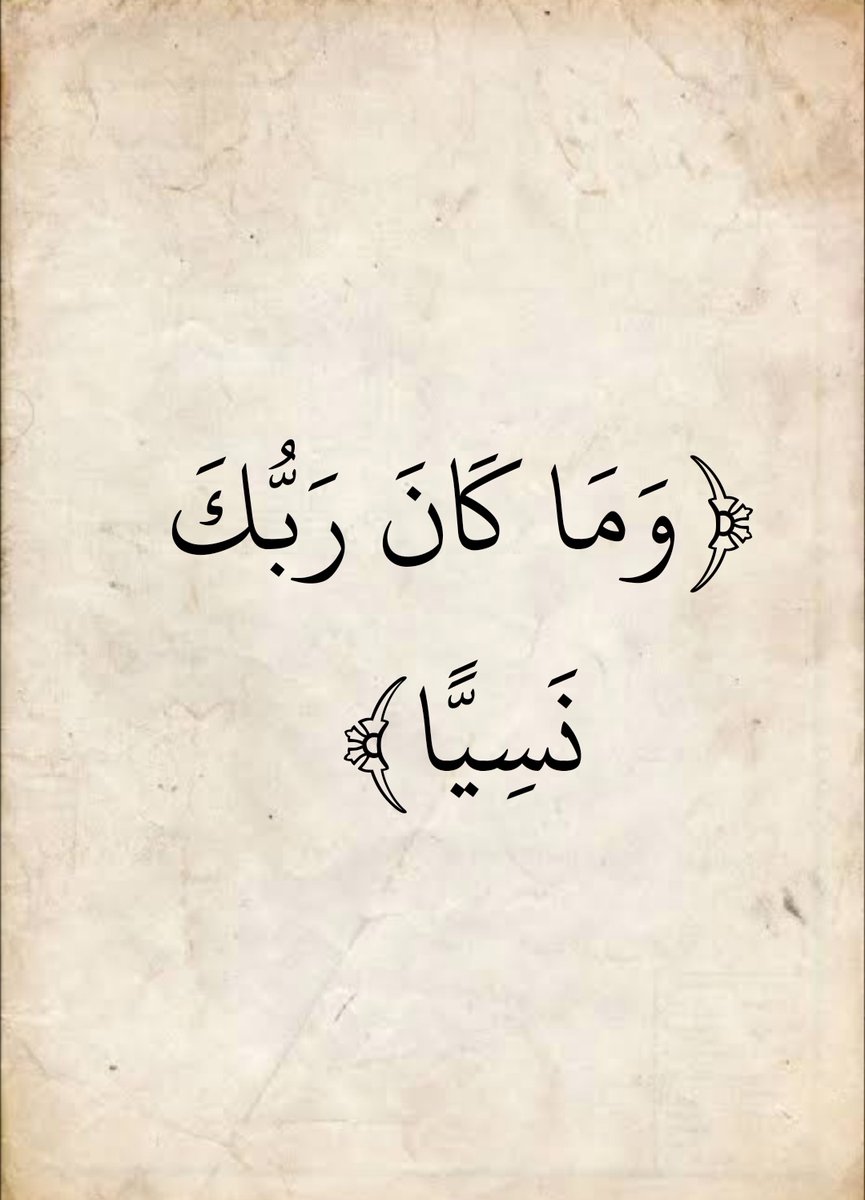 ﴿وَمَا كَانَ رَبُّكَ
نَسِيًّا﴾